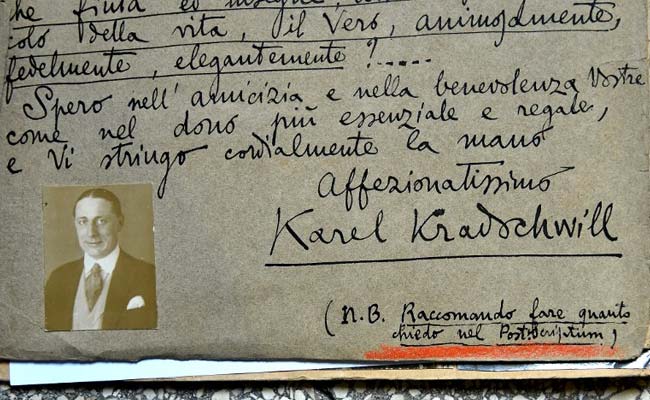 che fiuta ed insegue,
colo della vita, il Vero, animosamente,
fedelmente, elegantemente?.....
Spero nell'amicizia e nella benevolenza Vostre
come nel dono più essenziale e regale,
e Vi stringo cordialmente la mano
Affezionatissimo
Karel Kradschwill
(N.B. Raccomando fare quanto
chiedo nel Post-Scriptum)